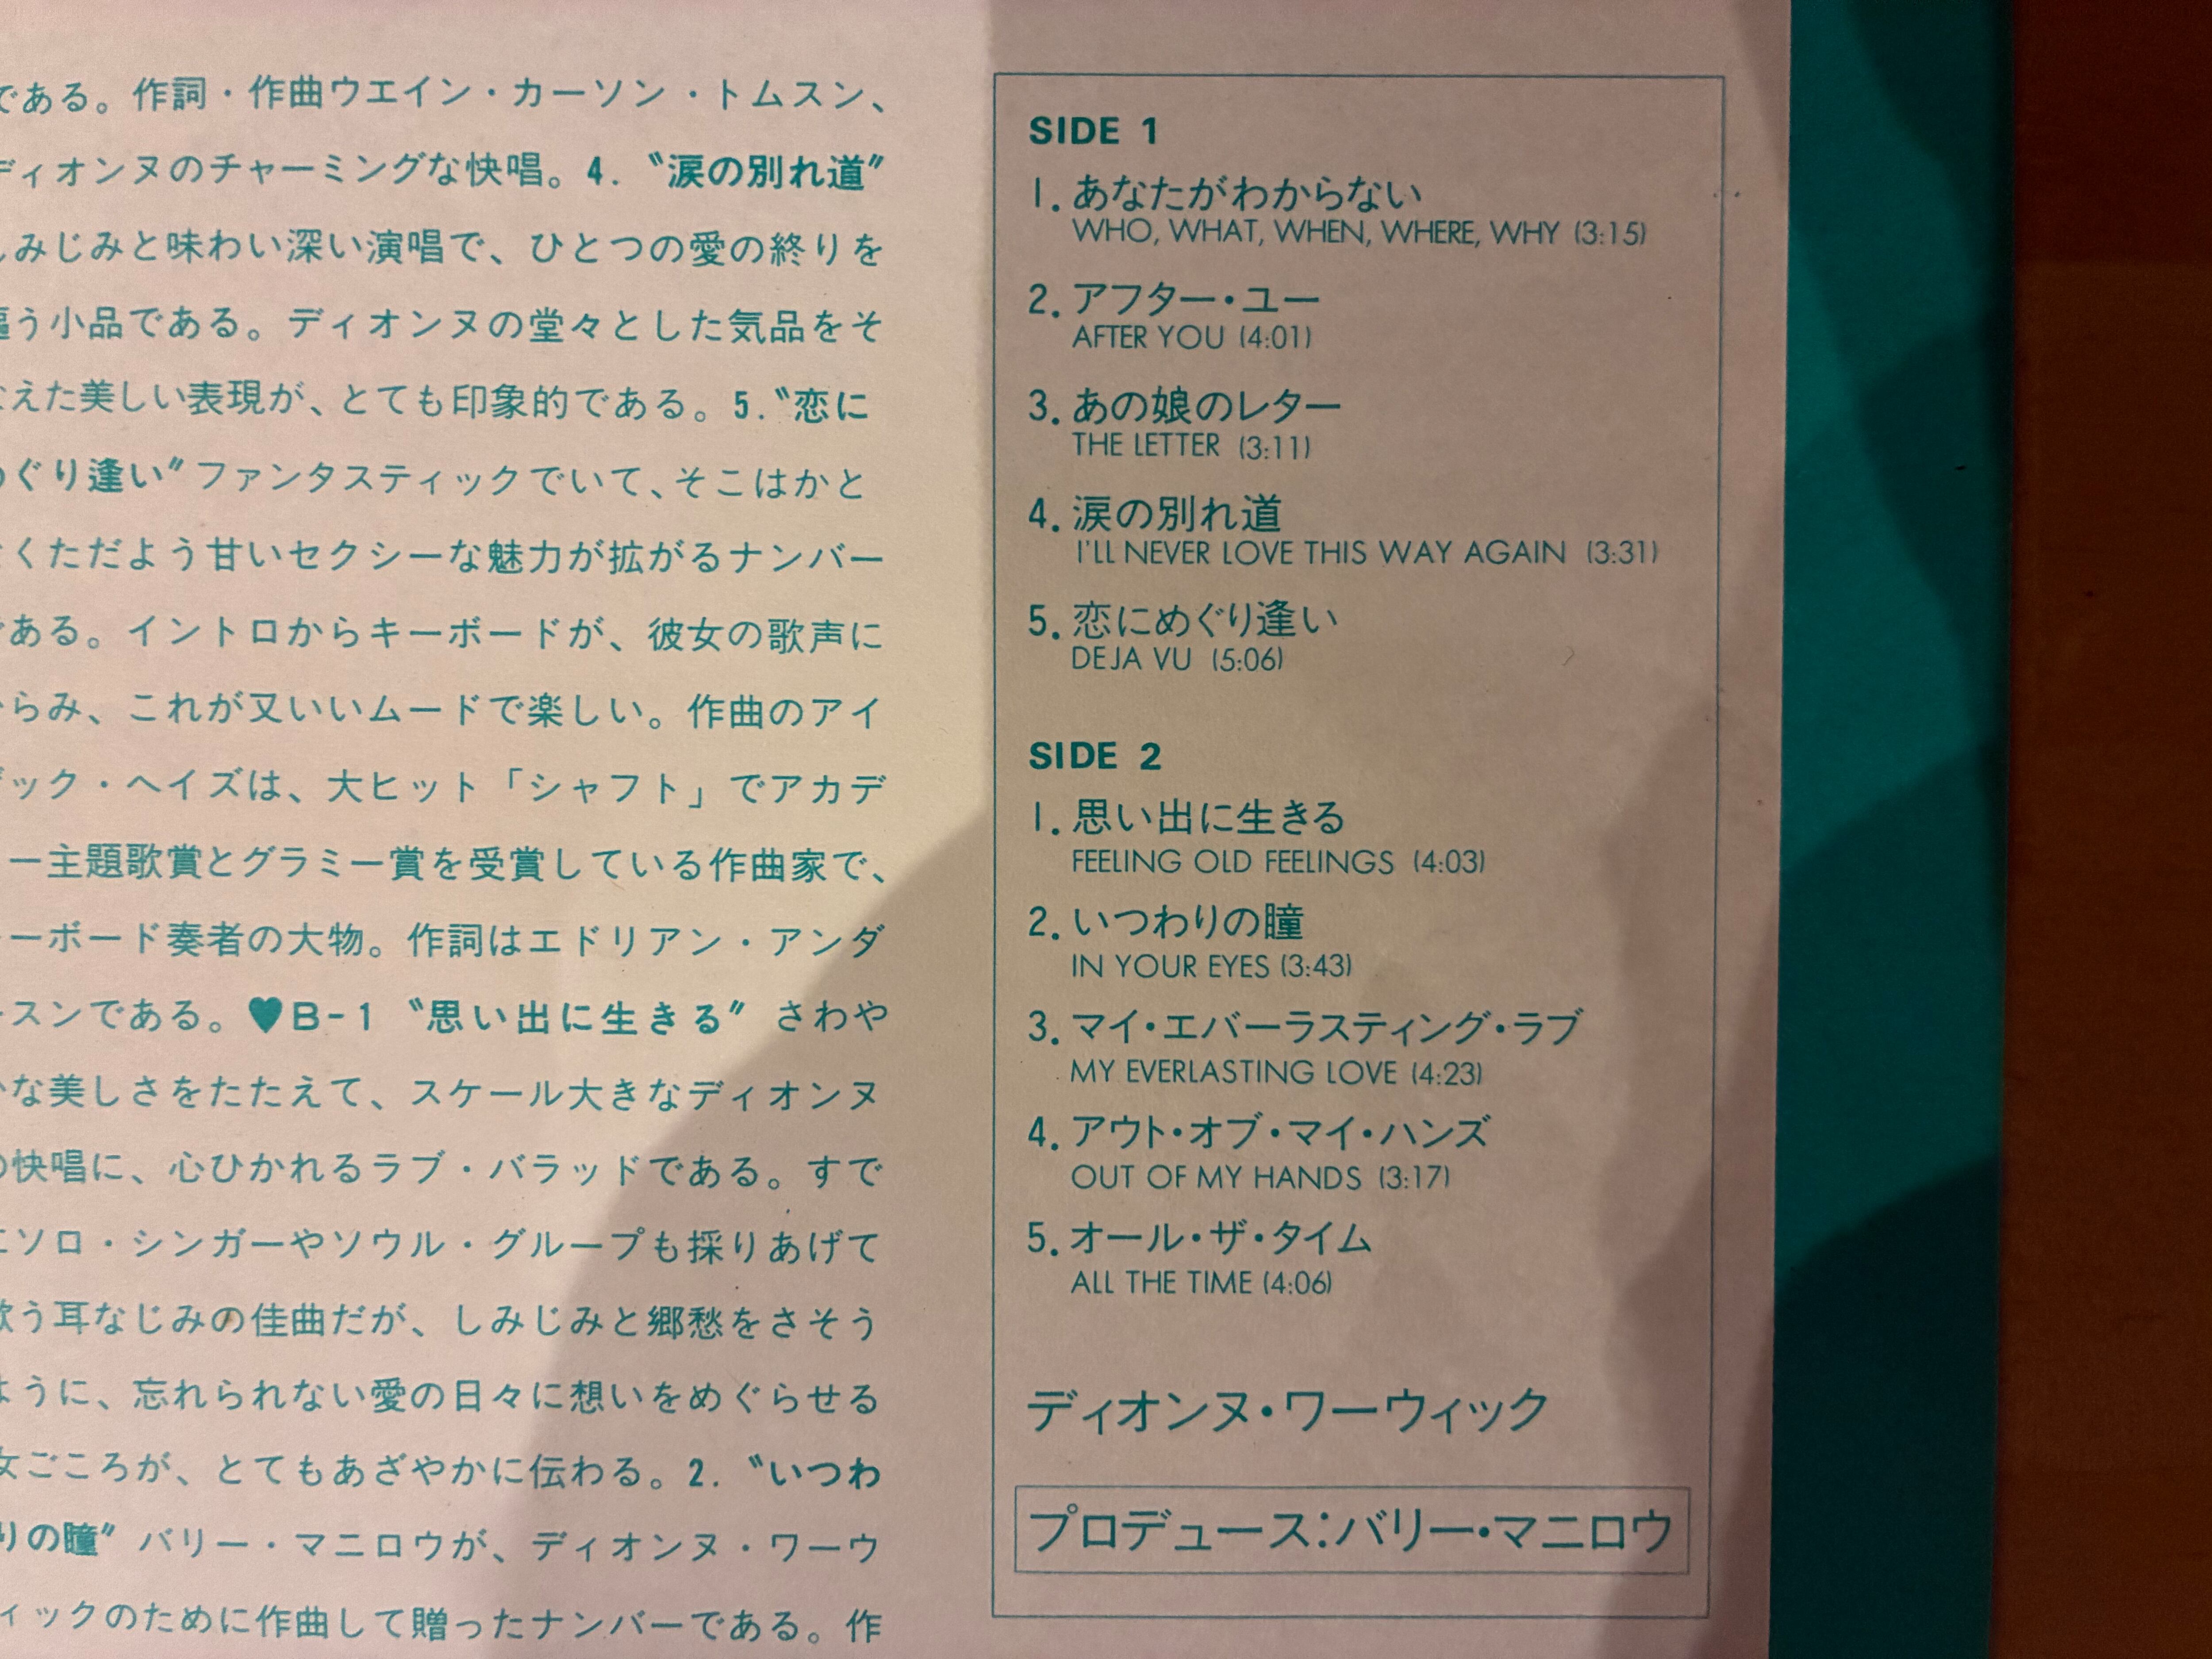 である。作詞・作曲ウエイン・カーソン・トムスン、
ディオンヌのチャーミングな快唱。4.〝涙の別れ道〟
しみじみと味わい深い演唱で、ひとつの愛の終りを
う小品である。ディオンヌの堂々とした気品をそ
えた美しい表現が、とても印象的である。5.〝恋に
めぐり逢い〟ファンタスティックでいて、そこはかと
くただよう甘いセクシーな魅力が拡がるナンバー
である。イントロからキーボードが、彼女の歌声に
からみ、これが又いいムードで楽しい。作曲のアイ
ザック・ヘイズは、大ヒット「シャフト」でアカデ
ー主題歌賞とグラミー賞を受賞している作曲家で、
ーボード奏者の大物。作詞はエドリアン・アンダ
スンである。♥B-1〝思い出に生きる〟さわや
かな美しさをたたえて、スケール大きなディオンヌ
の快唱に、心ひかれるラブ・バラッドである。すで
にソロ・シンガーやソウル・グループも採りあげて
歌う耳なじみの佳曲だが、しみじみと郷愁をさそう
ように、忘れられない愛の日々に想いをめぐらせる
女ごころが、とてもあざやかに伝わる。2.〝いつわ
りの瞳〟バリー・マニロウが、ディオンヌ・ワーウ
ィックのために作曲して贈ったナンバーである。作
SIDE 1
1.あなたがわからない
WHO, WHAT, WHEN, WHERE, WHY (3:15)
2.アフター・ユー
AFTER YOU (4:01)
3.あの娘のレター
THE LETTER (3:11)
4.涙の別れ道
I'LL NEVER LOVE THIS WAY AGAIN (3:31)
5.恋にめぐり逢い
DEJA VU (5:06)
SIDE 2
1.思い出に生きる
FEELING OLD FEELINGS (4:03)
2.いつわりの瞳
IN YOUR EYES (3:43)
3.マイ・エバーラスティング・ラブ
MY EVERLASTING LOVE (4:23)
4.アウト・オブ・マイ・ハンズ
OUT OF MY HANDS (3:17)
5.オール・ザ・タイム
ALL THE TIME (4:06)
ディオンヌ・ワーウィック
プロデュース:バリー・マニロウ